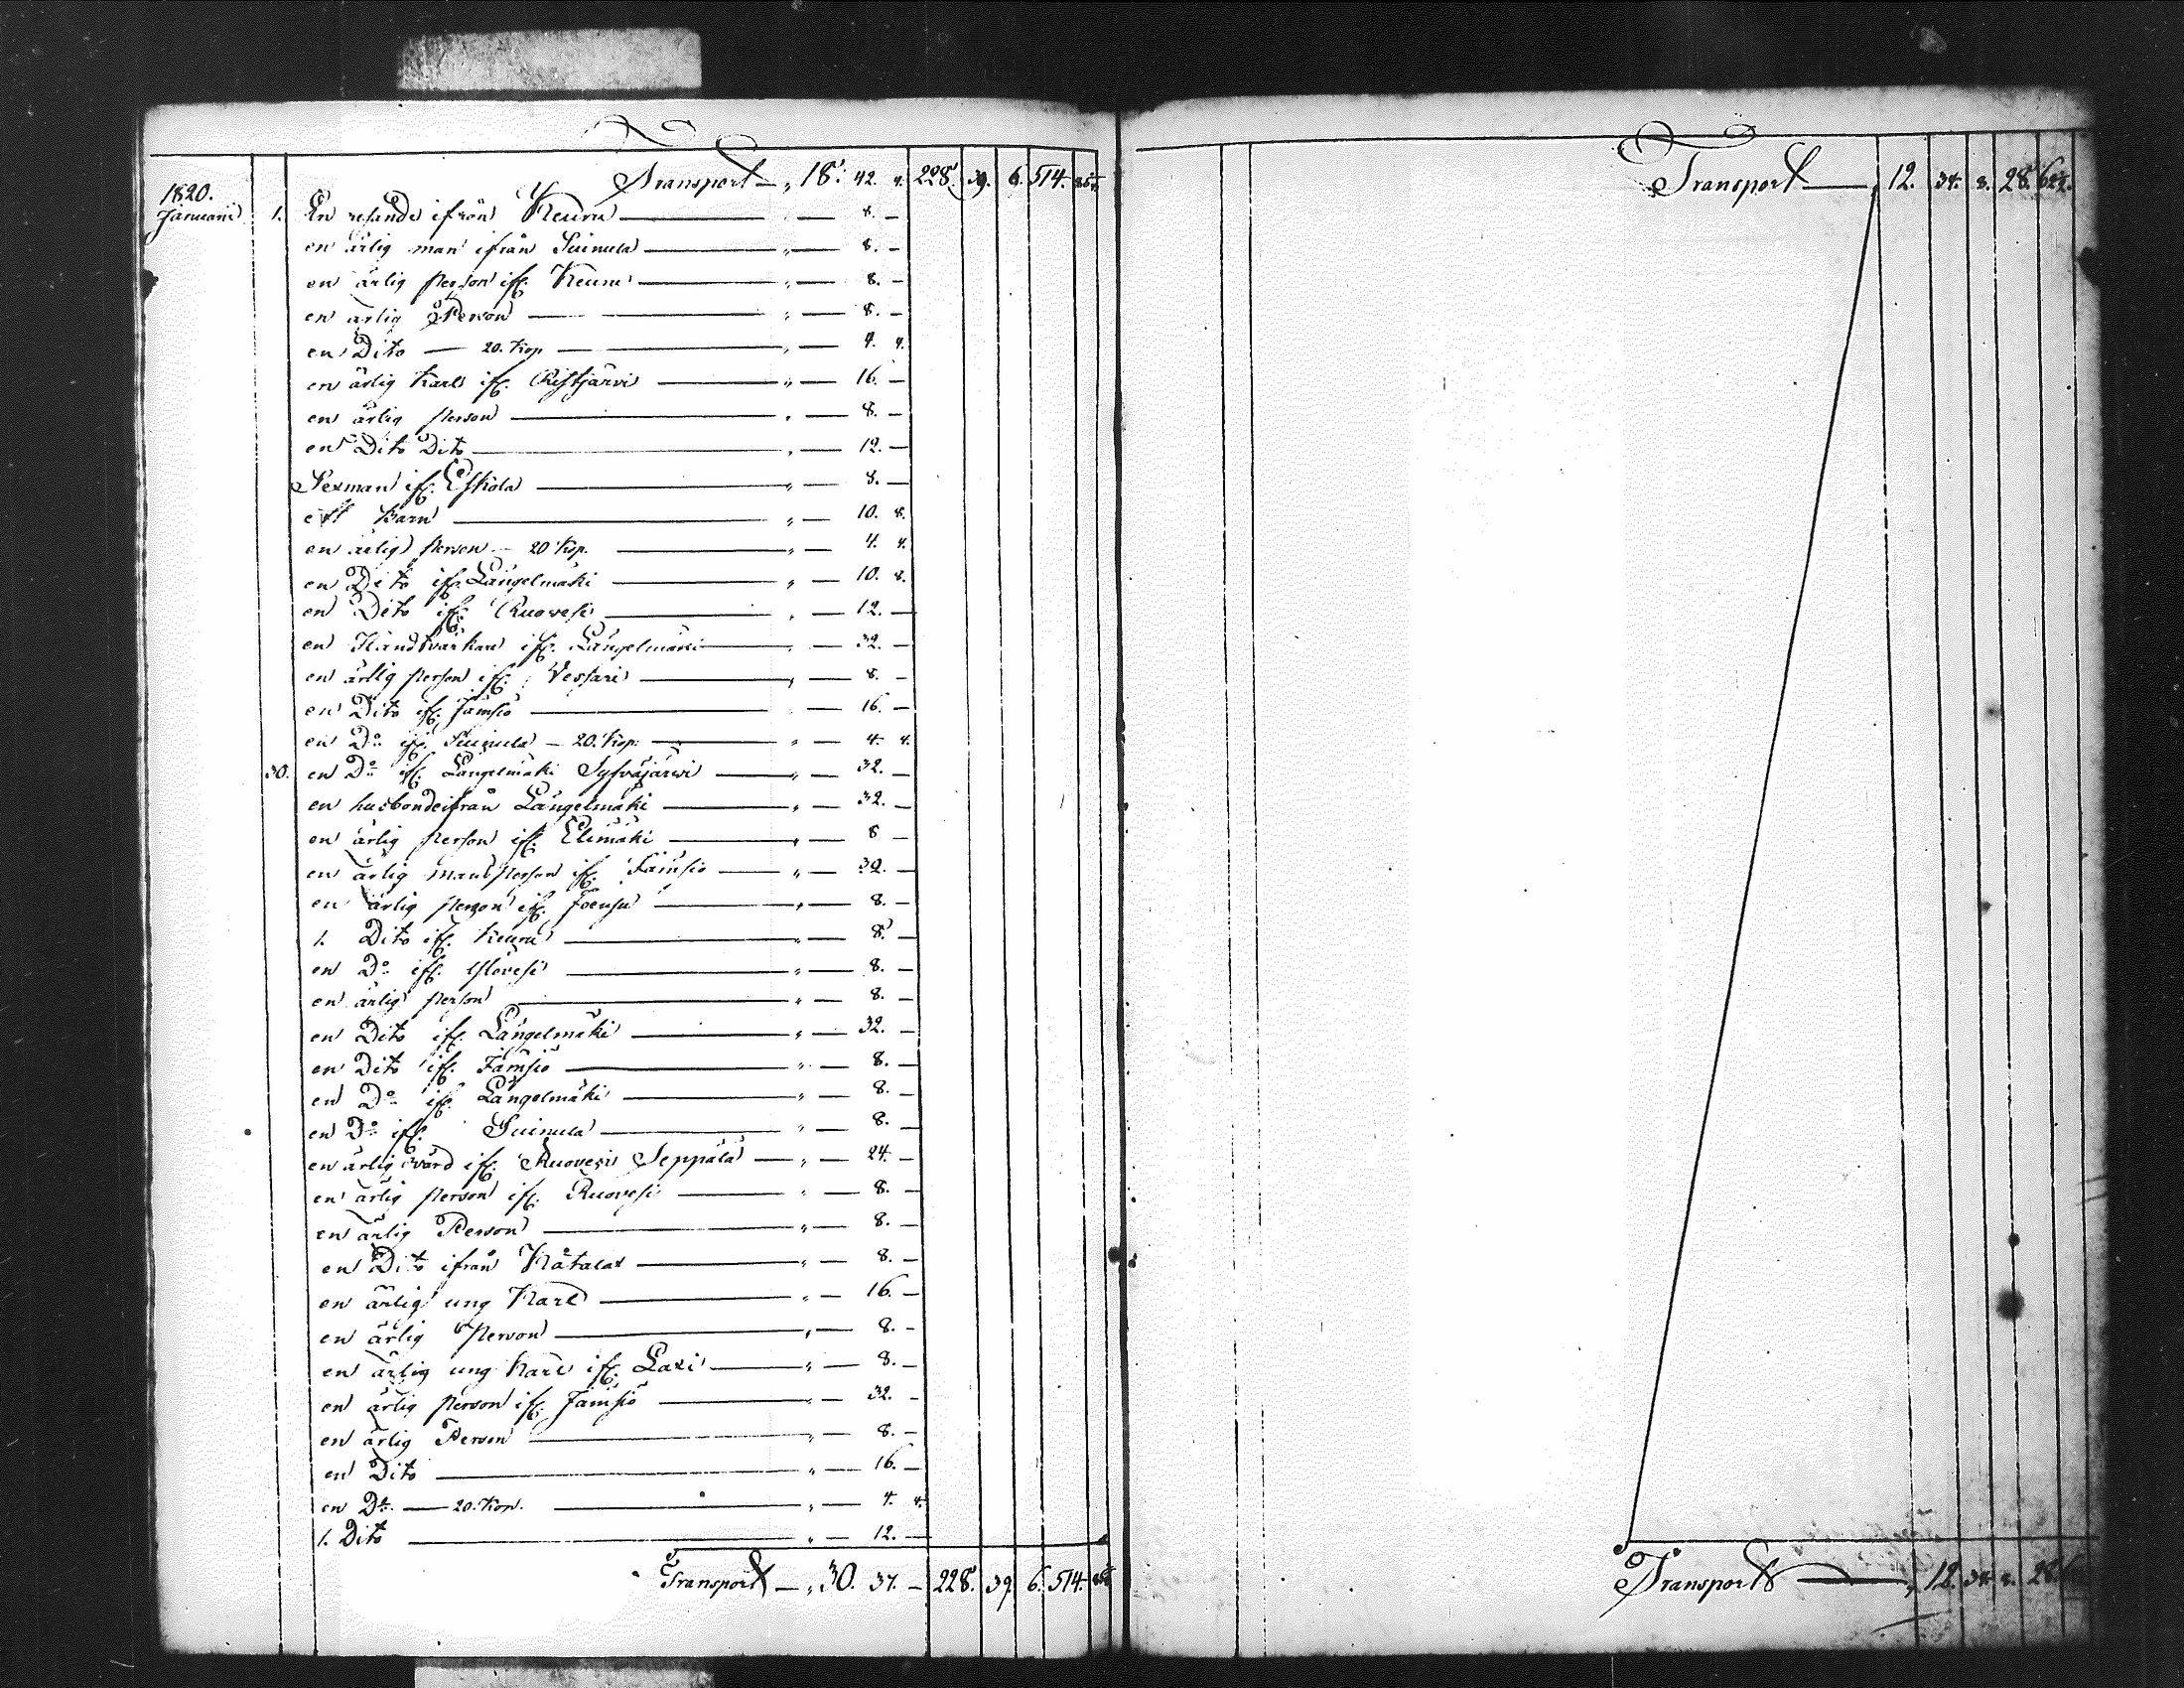 Transport — „ 18. 42. 4. 228. 39. 6. 514.
1820.
Januarii 1. En resande ifrån Keuru — „ — 8. —
en ärlig man ifrån Suinula — „ — 8. —
en ärlig person ifr. Keuru — „ — 8. —
en ärlig Person — „ — 8. —
en Dito — 20. Kop — „ — 4. 4.
en ärlig Karl ifr. Ristjärvi — „ — 16. —
en ärlig person — „ — 8. —
en Dito Dito — „ — 12. —
Sexman ifr. Eskola — „ — 8. —
ett Barn — „ — 10. 8.
en ärlig person — 20 Kop. — „ — 4. 4.
en Dito ifr. Längelmäki — „ — 10. 8.
en Dito ifr. Ruovesi — „ — 12. —
en Handtvärkare ifr. Längelmäki — „ — 32. —
en ärlig person ifr. Vessari — „ — 8. —
en Dito ifr. Jämsiö — „ — 16. —
en Do ifr. Suinula — 20. Kop. — „ — 4. 4.
30. en Do ifr. Längelmäki Syfväjärvi — „ — 32. —
en husbonde ifrån Längelmäki — „ — 32. —
en ärlig person ifr. Elimäki — „ — 8 —
en ärlig mansperson ifr. Jämsiö — „ — 32. —
en ärlig person ifr. Joensu — „ — 8. —
1. Dito ifr. Keuru — „ — 8. —
en Do ifr. — „ — 8. —
en ärlig person — „ — 8. —
en Dito ifr. Längelmäki — „ — 32. —
en Dito ifr. Jämsiö — „ — 8. —
en Do ifr. Längelmäki — „ — 8. —
en Do ifr. Suinula — „ — 8. —
en ärlig värd ifr. Ruovesi Seppälä — „ — 24. —
en ärlig person ifr. Ruovesi — „ — 8. —
en ärlig Person — „ — 8. —
en Dito ifrån Nåtalax — „ — 8. —
en ärlig ung Karl — „ — 16. —
en ärlig person — „ — 8. —
en ärlig ung Karl ifr. Laxi — „ — 8. —
en ärlig person ifr. Jämsiö — „ — 32. —
en ärlig Person — „ — 8. —
en Dito — „ — 16. —
en Do — 20. Kop. — „ — 4. 4.
1. Dito — „ — 12. —
Transport — „ 30. 37. — 228. 39 6. 514.
Transport — „ 12. 34. 8. 28.
Transport — „ 12. 34. 8. 28.